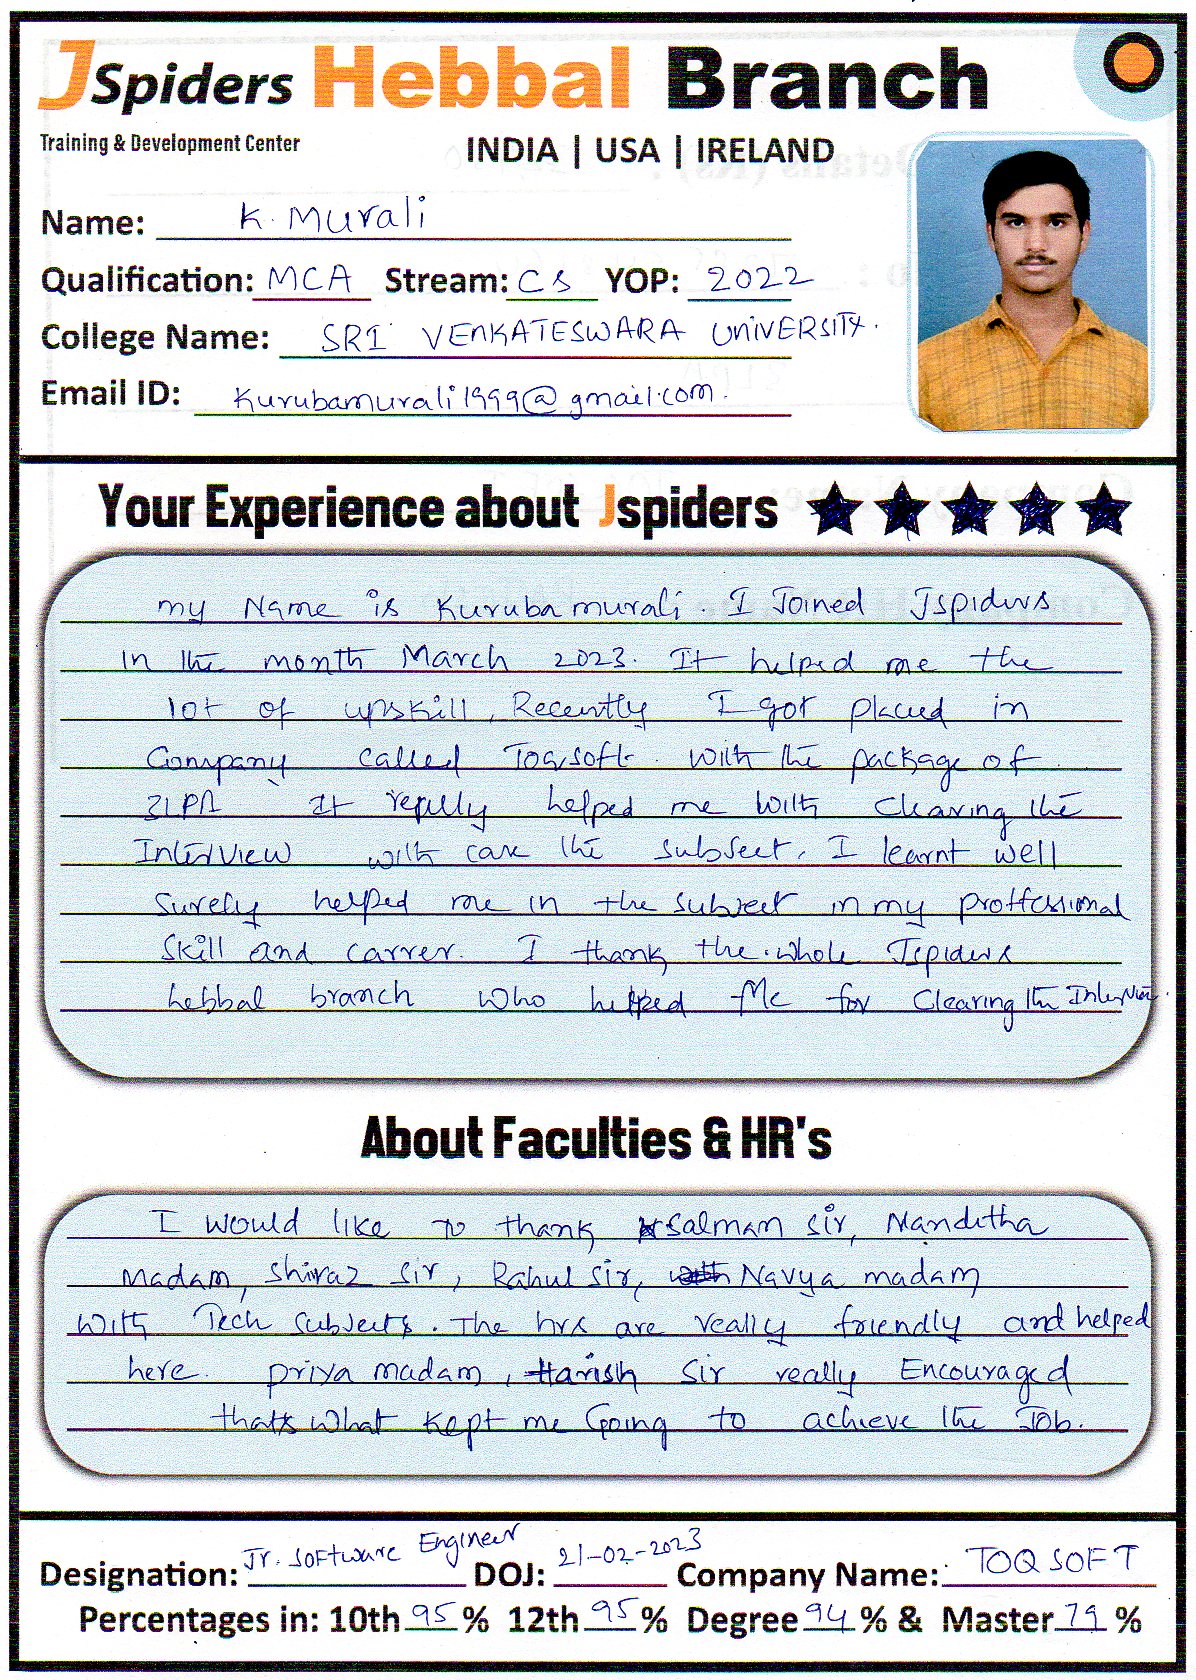 JSpiders Hebbal Branch
Training & Development Center
INDIA | USA | IRELAND
Name: K. Murali
Qualification: MCA Stream: CS YOP: 2022
College Name: SRI VENKATESWARA UNIVERSITY.
Email ID: kurubamurali1999@gmail.com.
Your Experience about Jspiders
my Name is Kuruba murali. I Joined Jspiders
in the month March 2023. It helped me the
lot of upskill, Recently I got placed in
Company called Toqsoft. with the package of
3LPA It helped me with Clearing the
Interview with care the subject. I learnt well
Surely helped me in the subject in my proffessional
Skill and carrer. I thank the whole Jspiders
hebbal branch who helped Me for Clearing the Interview.
About Faculties & HR's
I would like to thank Salman sir, Nanditha
Madam, Shiraz sir, Rahul sir, Navya madam
with Tech subjects. The hrs are really friendly and helped
here. priya madam, Harish sir really Encouraged
thats what kept me Going to achieve the Job.
Designation: Jr. Software Engineer DOJ: 21-02-2023 Company Name: TOQSOFT
Percentages in: 10th 95 % 12th 95 % Degree 94 % & Master 79 %